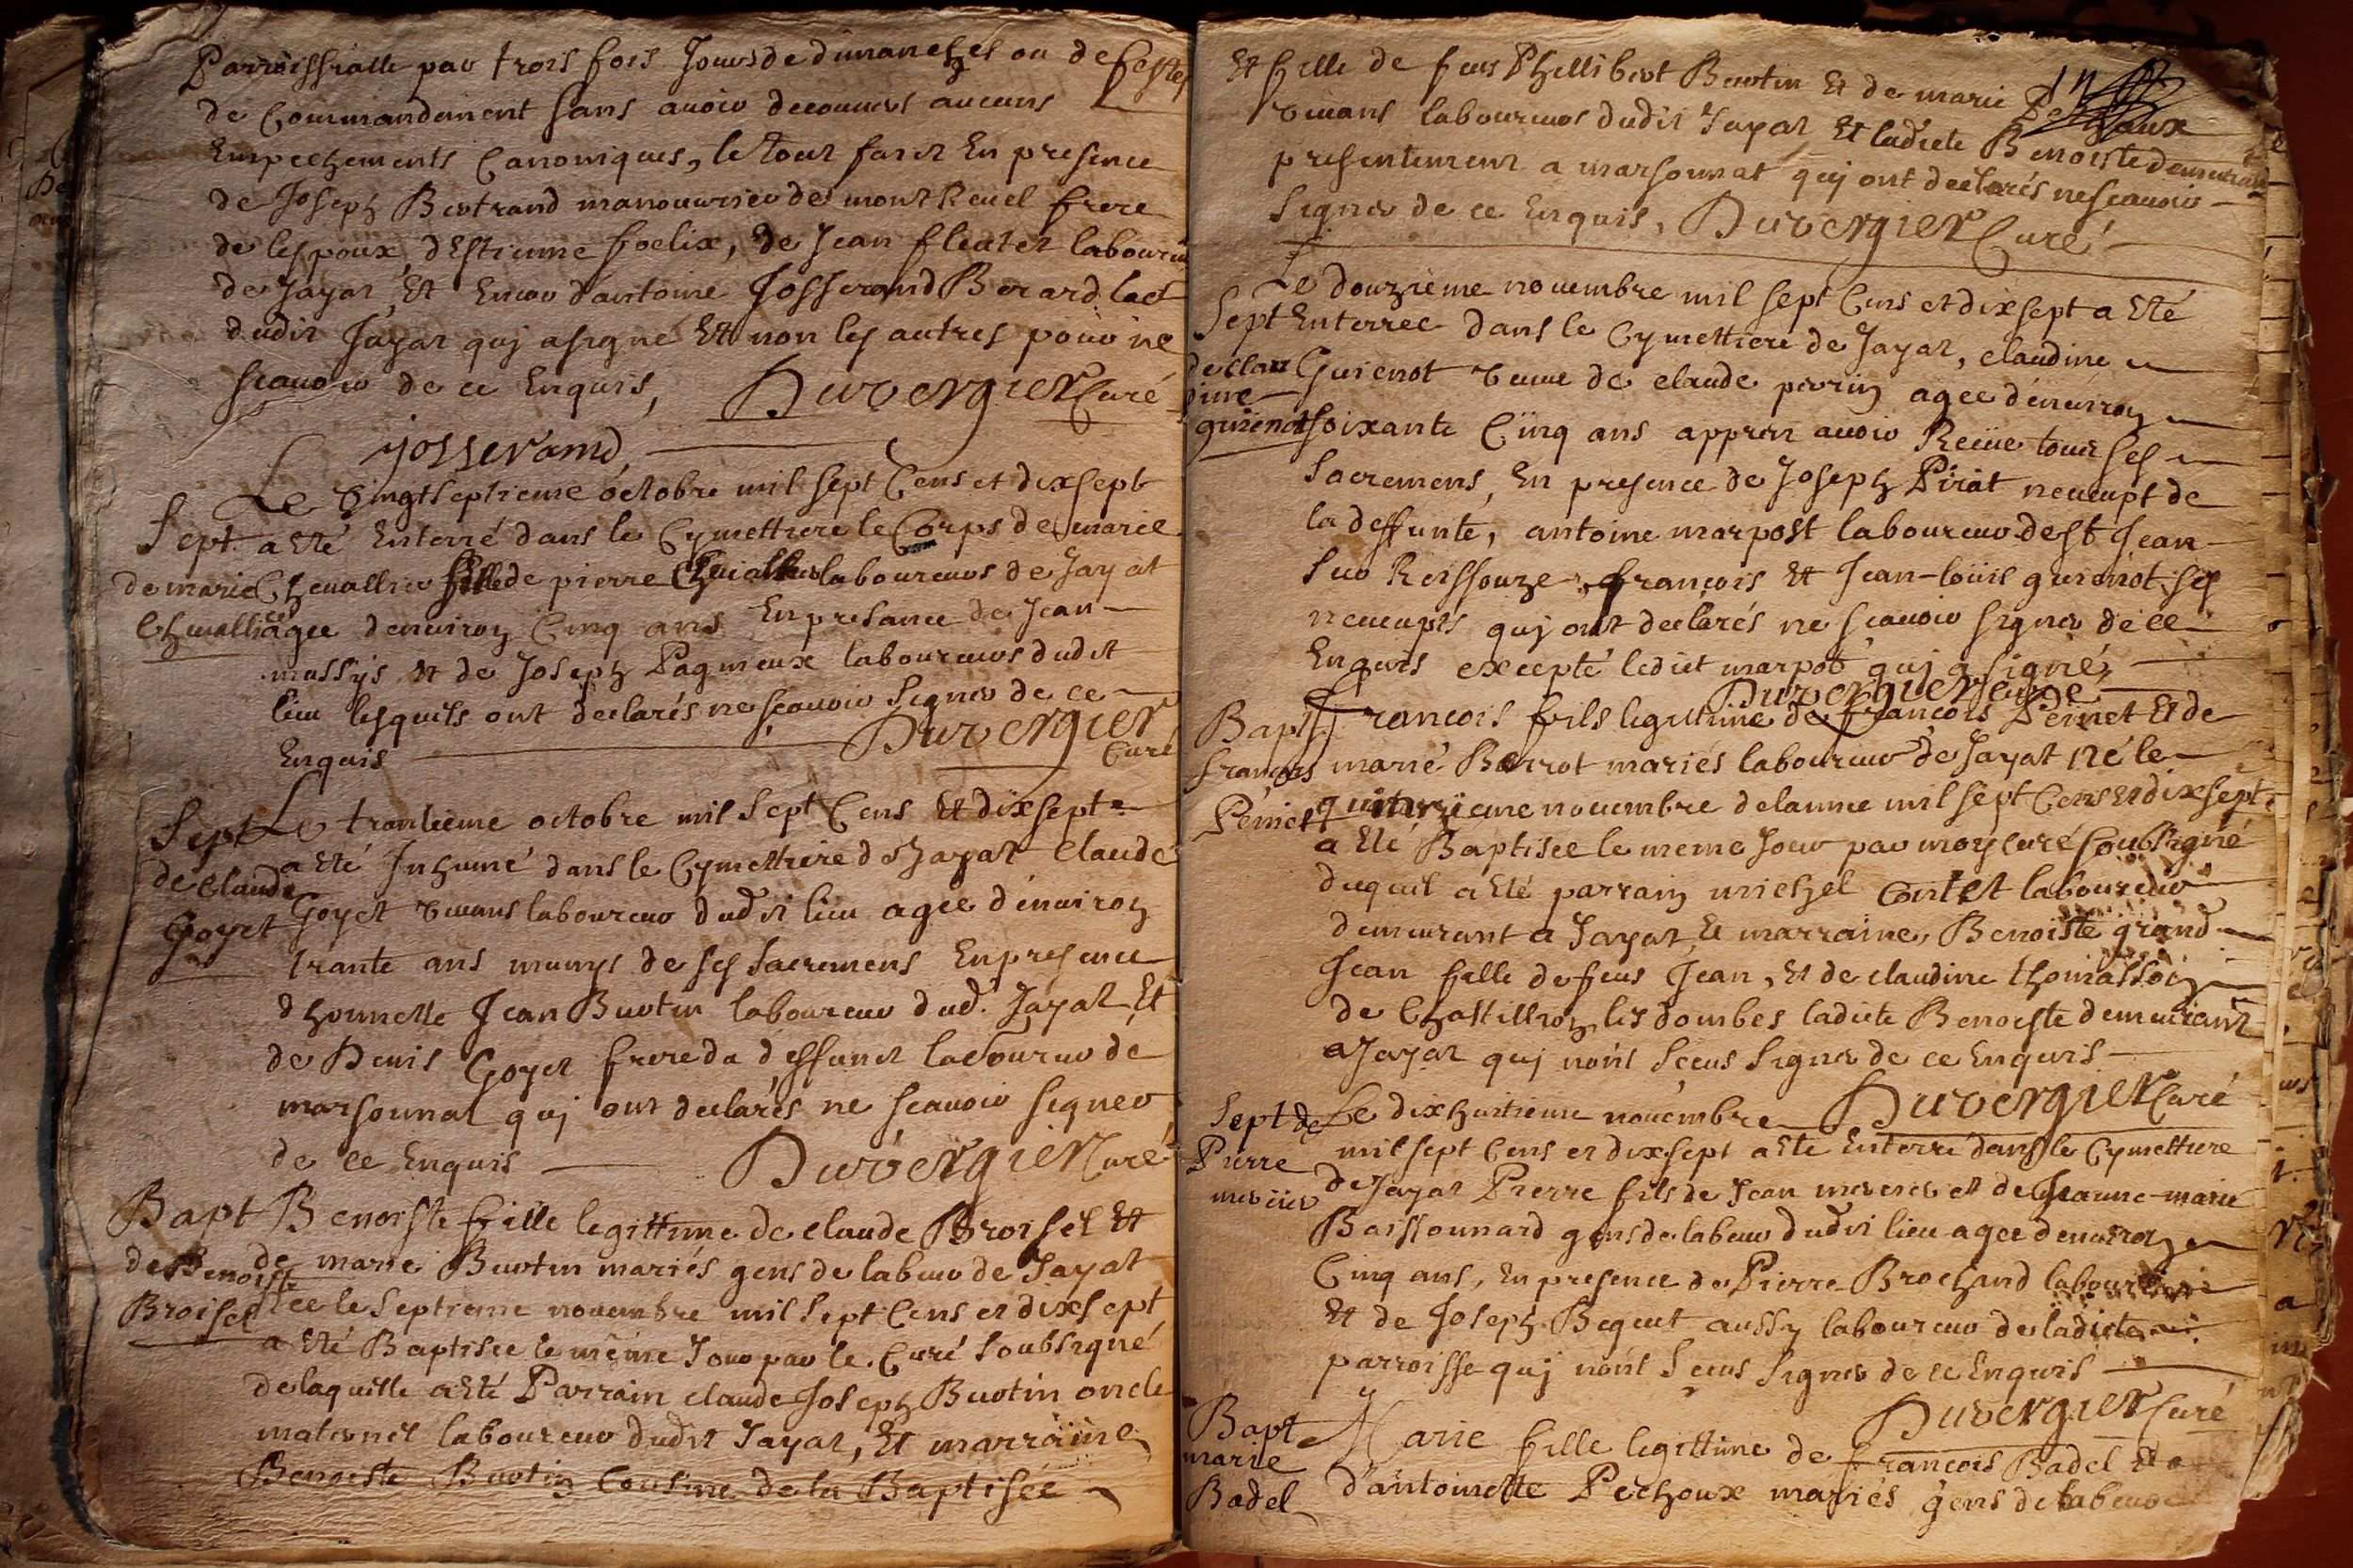 Parroissialle par trois fois Jours de dimanches ou de festes
de Commandement sans avoir decouvers aucuns
Empeehements Canoniques, le tout fairt En presence
de Joseph Bertrand manouvrier de mont Revel frere
de lespoux, dEstienne foelix, de Jean fleutet laboureur
de Jayat Et Encor dantoine Josserand Berard
dudit Jayat quj asigné Et non les autres pour ne
scavoir de ce Enquis, Duvergier Curé
josserand
Le Vingt septieme octobre mil sept Cens et dixsept
Sept. a Eté Enterré dans le Cymettiere le Corps de marie
de marie Chevallier fille de pierre Chevallier laboureur de Jayat
Chevallier agee denviron Cinq ans En presance de Jean
massys et de Joseph Pagneux laboureurs dudit
lieu lesquels ont declarés ne scavoir signer de ce
Enquis Duvergier
Curé
Sept Le trantieme octobre mil sept Cens Et dixsept
a Eté Inhumé dans le Cymettiere de Jayat Claude
de Claude
Goyet Goyet vivans laboureur dudit lieu agee d'environ
trante ans munys de ses Sacremens En presence
dhonneste Jean Buotin laboureur dud. Jayat Et
de Denis Goyet frere du deffunct laboureur de
marsonnat quj ont declarés ne scavoir signer
de ce Enquis Duvergier Curé
Bapt Benoiste fille legittime de claude Broiset Et
de Benoiste de marie Buotin mariés gens de labeur de Jayat
Broiset née le Septieme novembre mil sept Cens et dixsept
a Eté Baptisee le méme Jour par le Curé soubsigné
de laquelle a Eté Parrain claude Joseph Buotin oncle
maternel laboureur dudit Jayat, Et marraine
Benoiste Buotin Cousine de la Baptisée
Et fille de feus Phillibert Buotin Et de marie
vivans laboureurs dudit Jayat Et ladicte Benoiste demeurant
presentement a marsonnat quj ont declarés ne scavoir
signer de ce Enquis, Duvergier Curé
Le douzieme novembre mil sept Cens et dixsept a Eté
Sept Enterree dans le Cymettiere de Jayat, claudine
de claudine Guienot veuve de claude perrin agee d'environ
guienot soixante Cinq ans appres avoir Reçue tous ses
Sacremens, En presence de Joseph Pirat neveupt de
la deffunte, antoine marpost laboureur de st Jean
sur Reissouze, françois Et Jean-loüis guienot ses
neveupts quj ont declarés ne scavoir signer de ce
Enquis excepté ledict marpost quj a signé,
Duvergier Curé
Bapt francois fils legittime de françois Peinet Et de
françois marie Borrot mariés laboureur de Jayat né le
Peinet quinzieme novembre de lannee mil sept Cens Et dixsept
a Eté Baptisee le meme Jour par moy curé soubsigné
duquel a Eté parrain michel Contet laboureur
demeurant a Jayat Et marraine, Benoiste grand
Jean fille de feus Jean, Et de claudine thomasson
de Chastillon les dombes ladicte Benoiste demeurant
a Jayat quj nont sceus signer de ce Enquis
Sept de Le dixhuitieme novembre Duvergier Curé
Pierre mil sept Cens et dixsept a Eté Enterré dans le Cymettiere
de Jayat Pierre fils de Jean et de Jeanne-marie
Boissonnard gens de labeur dudit lieu agee denviron
Cinq ans, En presence de Pierre Brochand laboureur
Et de Joseph Beguet aussy laboureur de ladicte
parroisse quj nont sceus signer de ce Enquis
Duvergier Curé
Bapt Marie fille legittime de francois Badel Et
marie
Badel d'antoinette Pechoux mariés gens de labeur